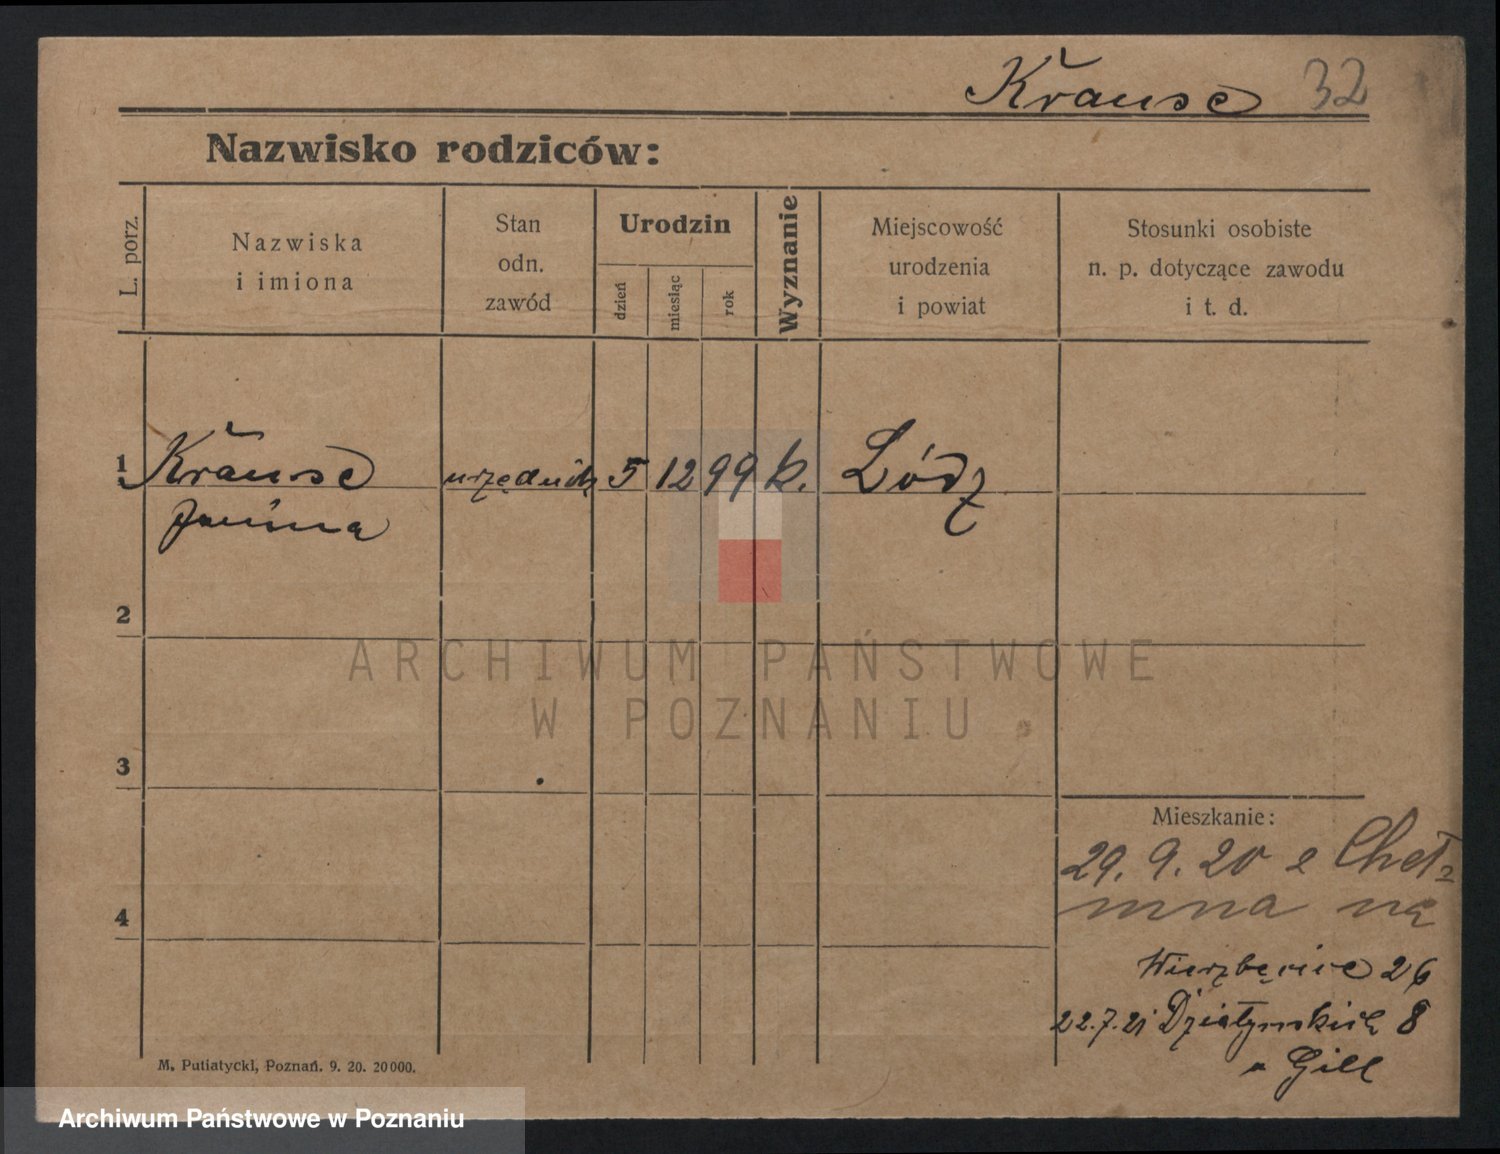 Krause 32
Nazwisko rodziców:
L. porz.
Nazwiska
i imiona
Stan
odn.
zawód
Urodzin
dzień
miesiąc
rok
Wyznanie
Miejscowość
urodzenia
i powiat
Stosunki osobiste
n. p. dotyczące zawodu
i t. d.
1 Krause urzędnicz 5 12 99 k. Łódź
Janina
2
ARCHIWUM PAŃSTWOWE
W POZNANIU
3
Mieszkanie:
29. 9. 20 z Cheł-
mna na
4
Wierzbięcice 26
22.7.21 Działyńskich 8
u Gill
M. Putiatycki, Poznań. 9. 20. 20000.
Archiwum Państwowe w Poznaniu